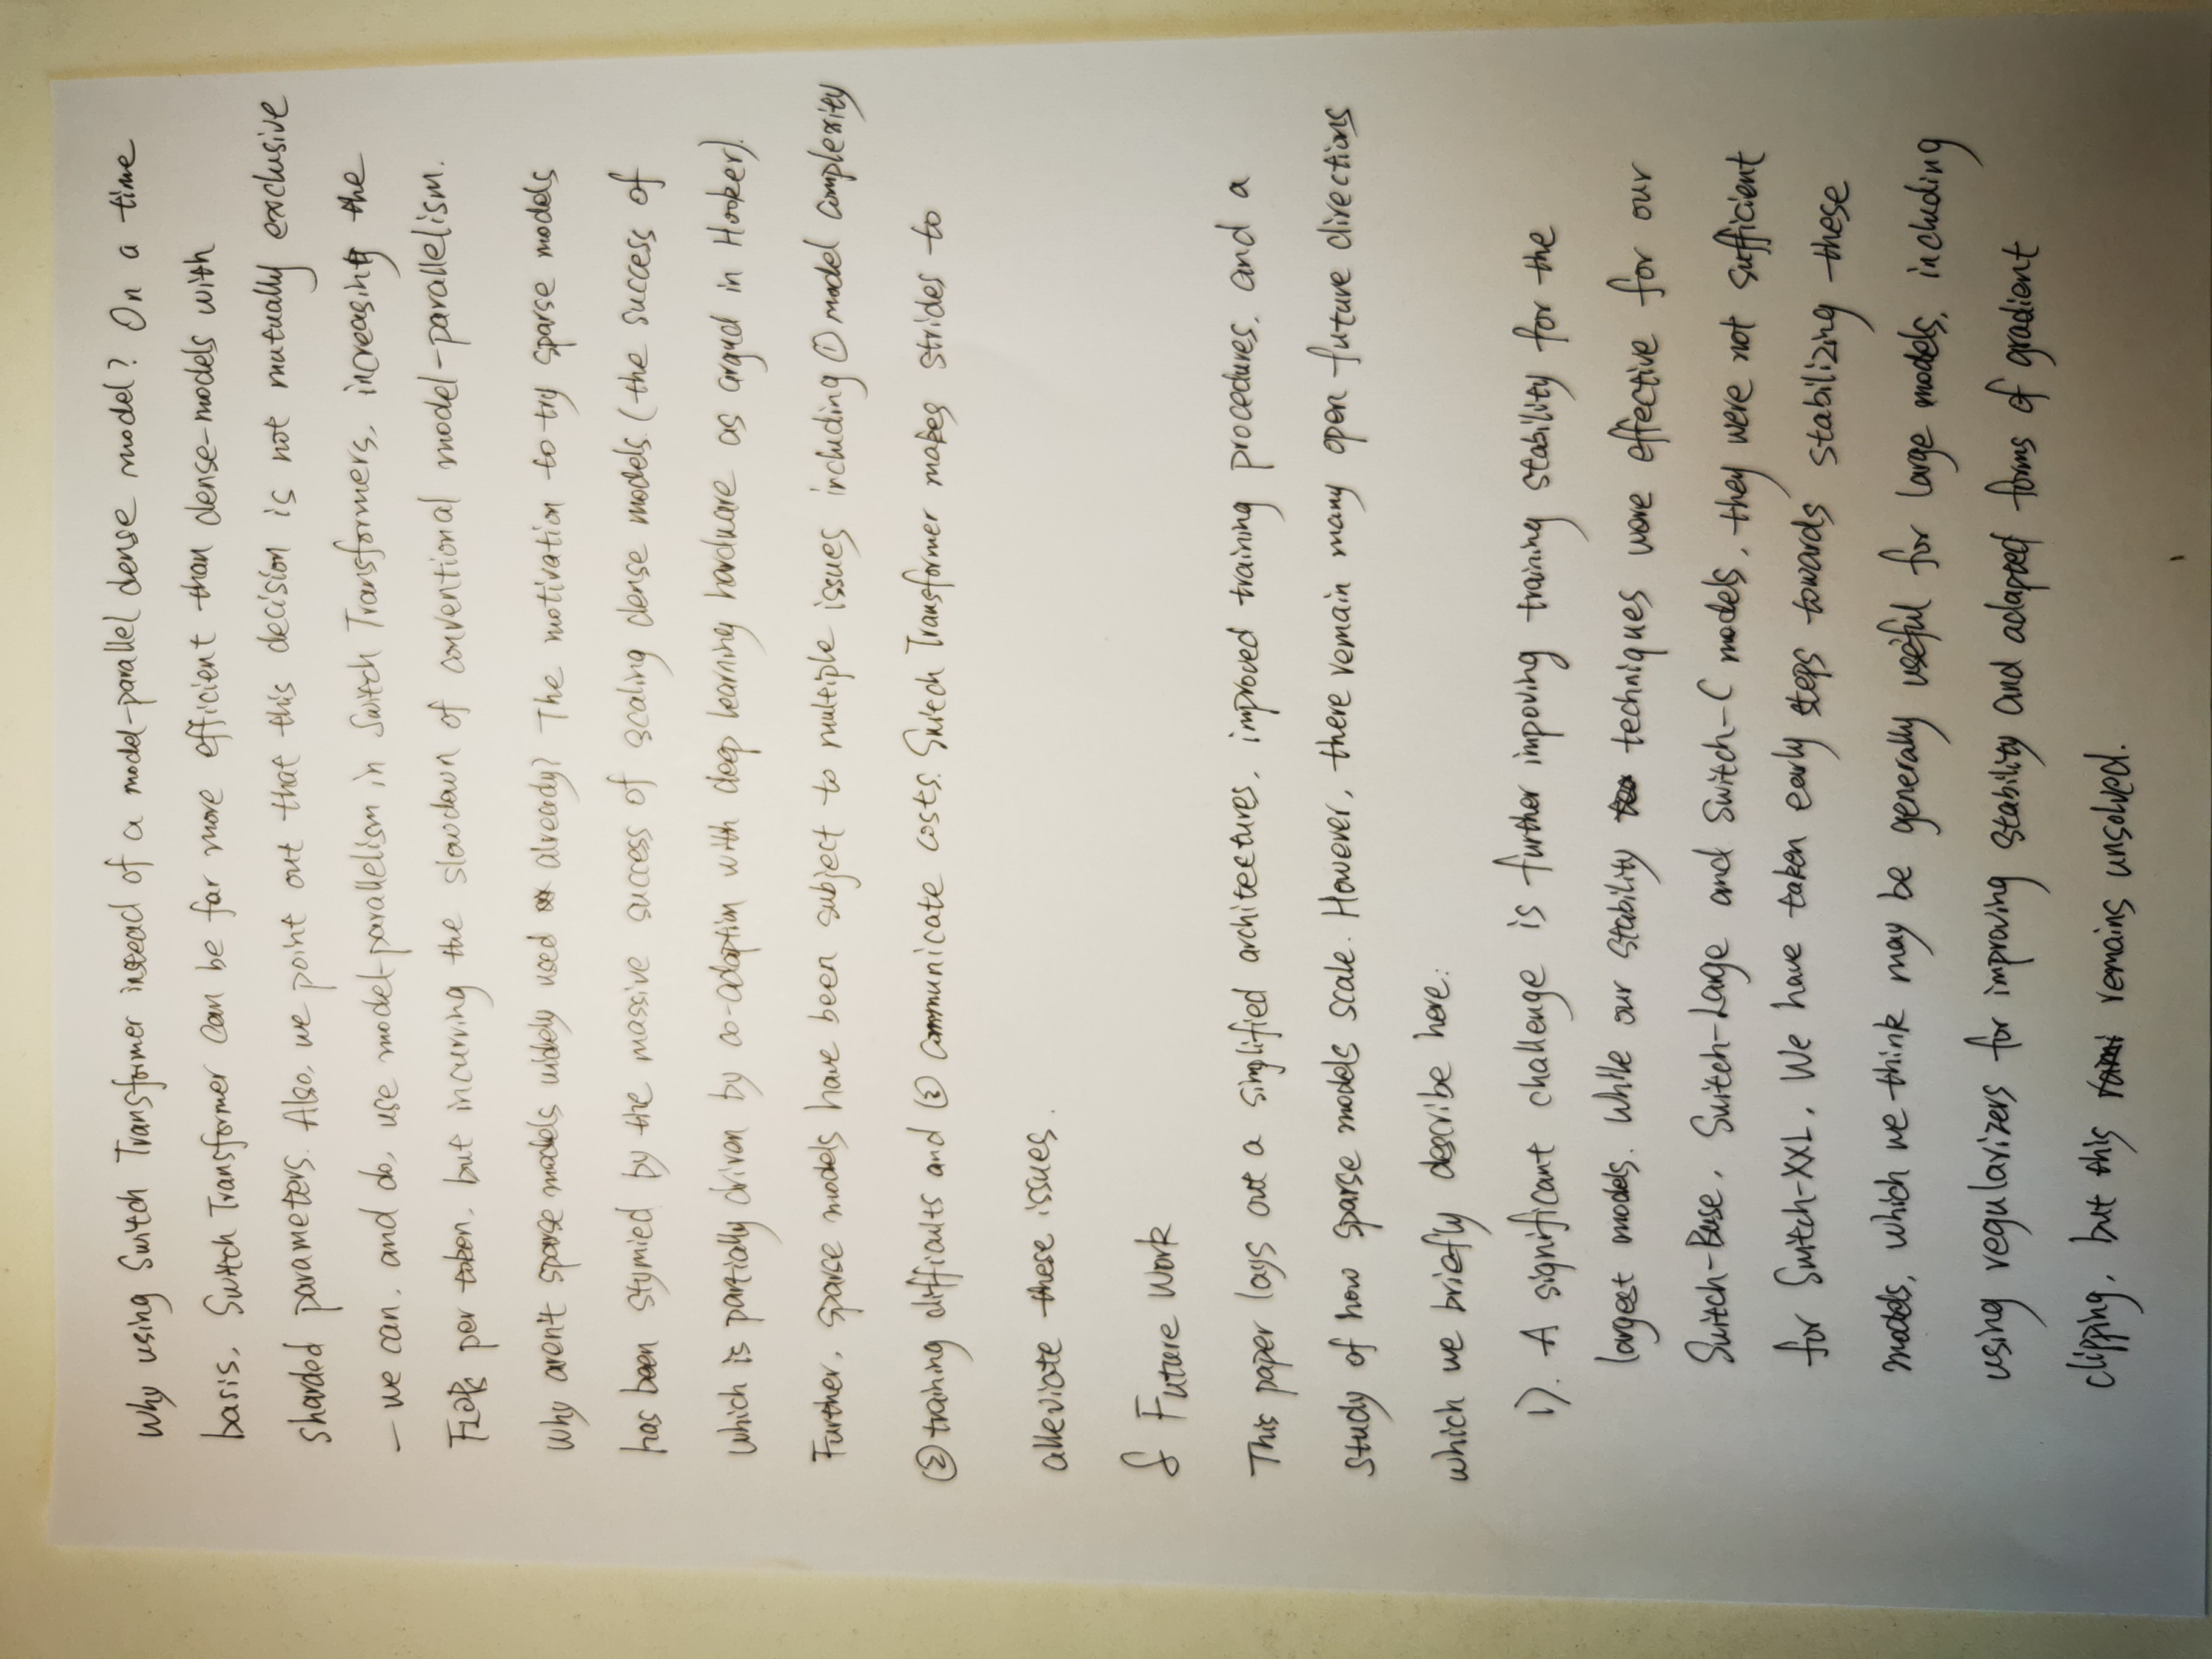 Why using Switch Transformer instead of a model-parallel dense model? On a time
basis, Switch Transformer can be far more efficient than dense-models with
sharded parameters. Also, we point out that this decision is not mutually exclusive
— we can, and do, use model-parallelism in Switch Transformers, increasing the
FLOPs per token, but incurring the slowdown of conventional model-parallelism.
Why aren't sparse models widely used already? The motivation to try sparse models
has been stymied by the massive success of scaling dense models (the success of
which is partially driven by co-adaption with deep learning hardware as argud in Hooker).
Further, sparse models have been subject to multiple issues including ① model complexity
② training difficults and ③ communicate costs. Switch Transformer makes strides to
alleviate these issues.
§ Future Work
This paper lays out a simplified architectures, improved training procedures, and a
study of how sparse models scale. However, there remain many open future directions
which we briefly describe here:
1). A significant challenge is further impoving training stability for the
largest models. While our stability techniques were effective for our
Switch-Base, Switch-Large and Switch-C models, they were not sufficient
for Switch-XXL. We have taken early steps towards stabilizing these
models, which we think may be generally useful for large models, including
using regularizers for improving stability and adapted forms of gradient
clipping, but this remains unsolved.